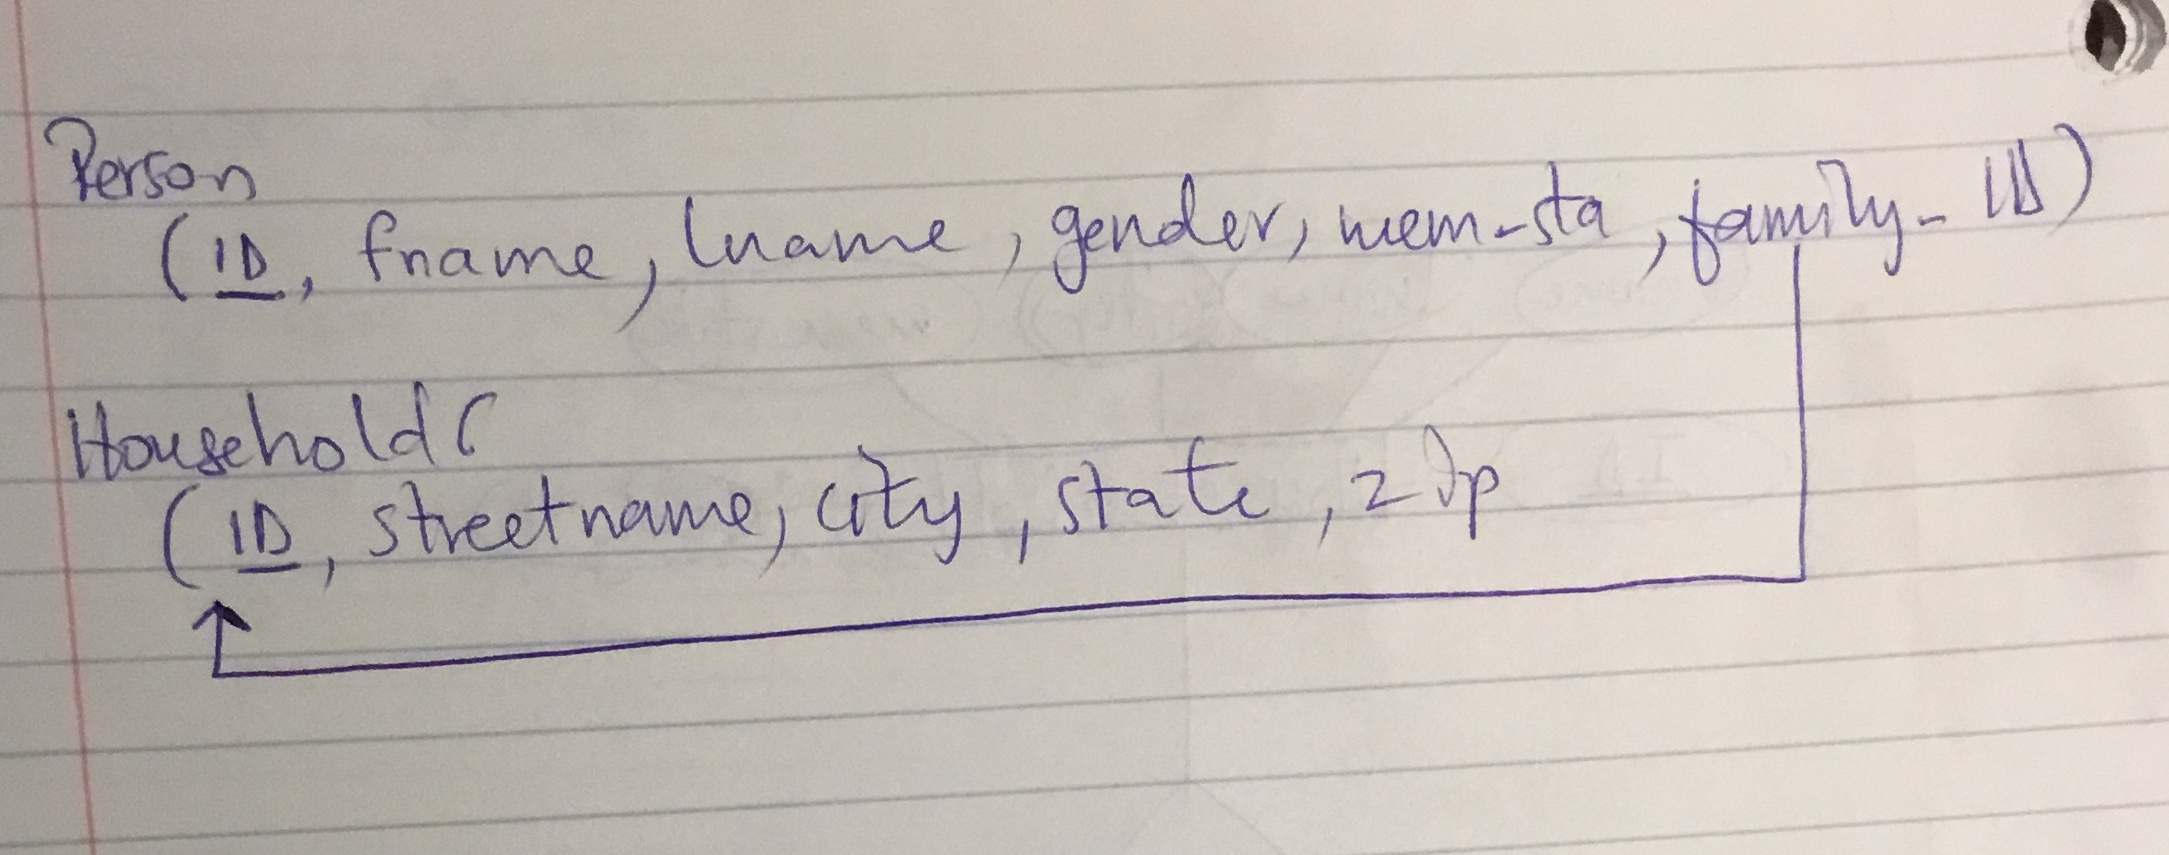 Person
(ID, fname, lname, gender, mem-sta, family_ID)
Household(
(ID, streetname, city, state, zip